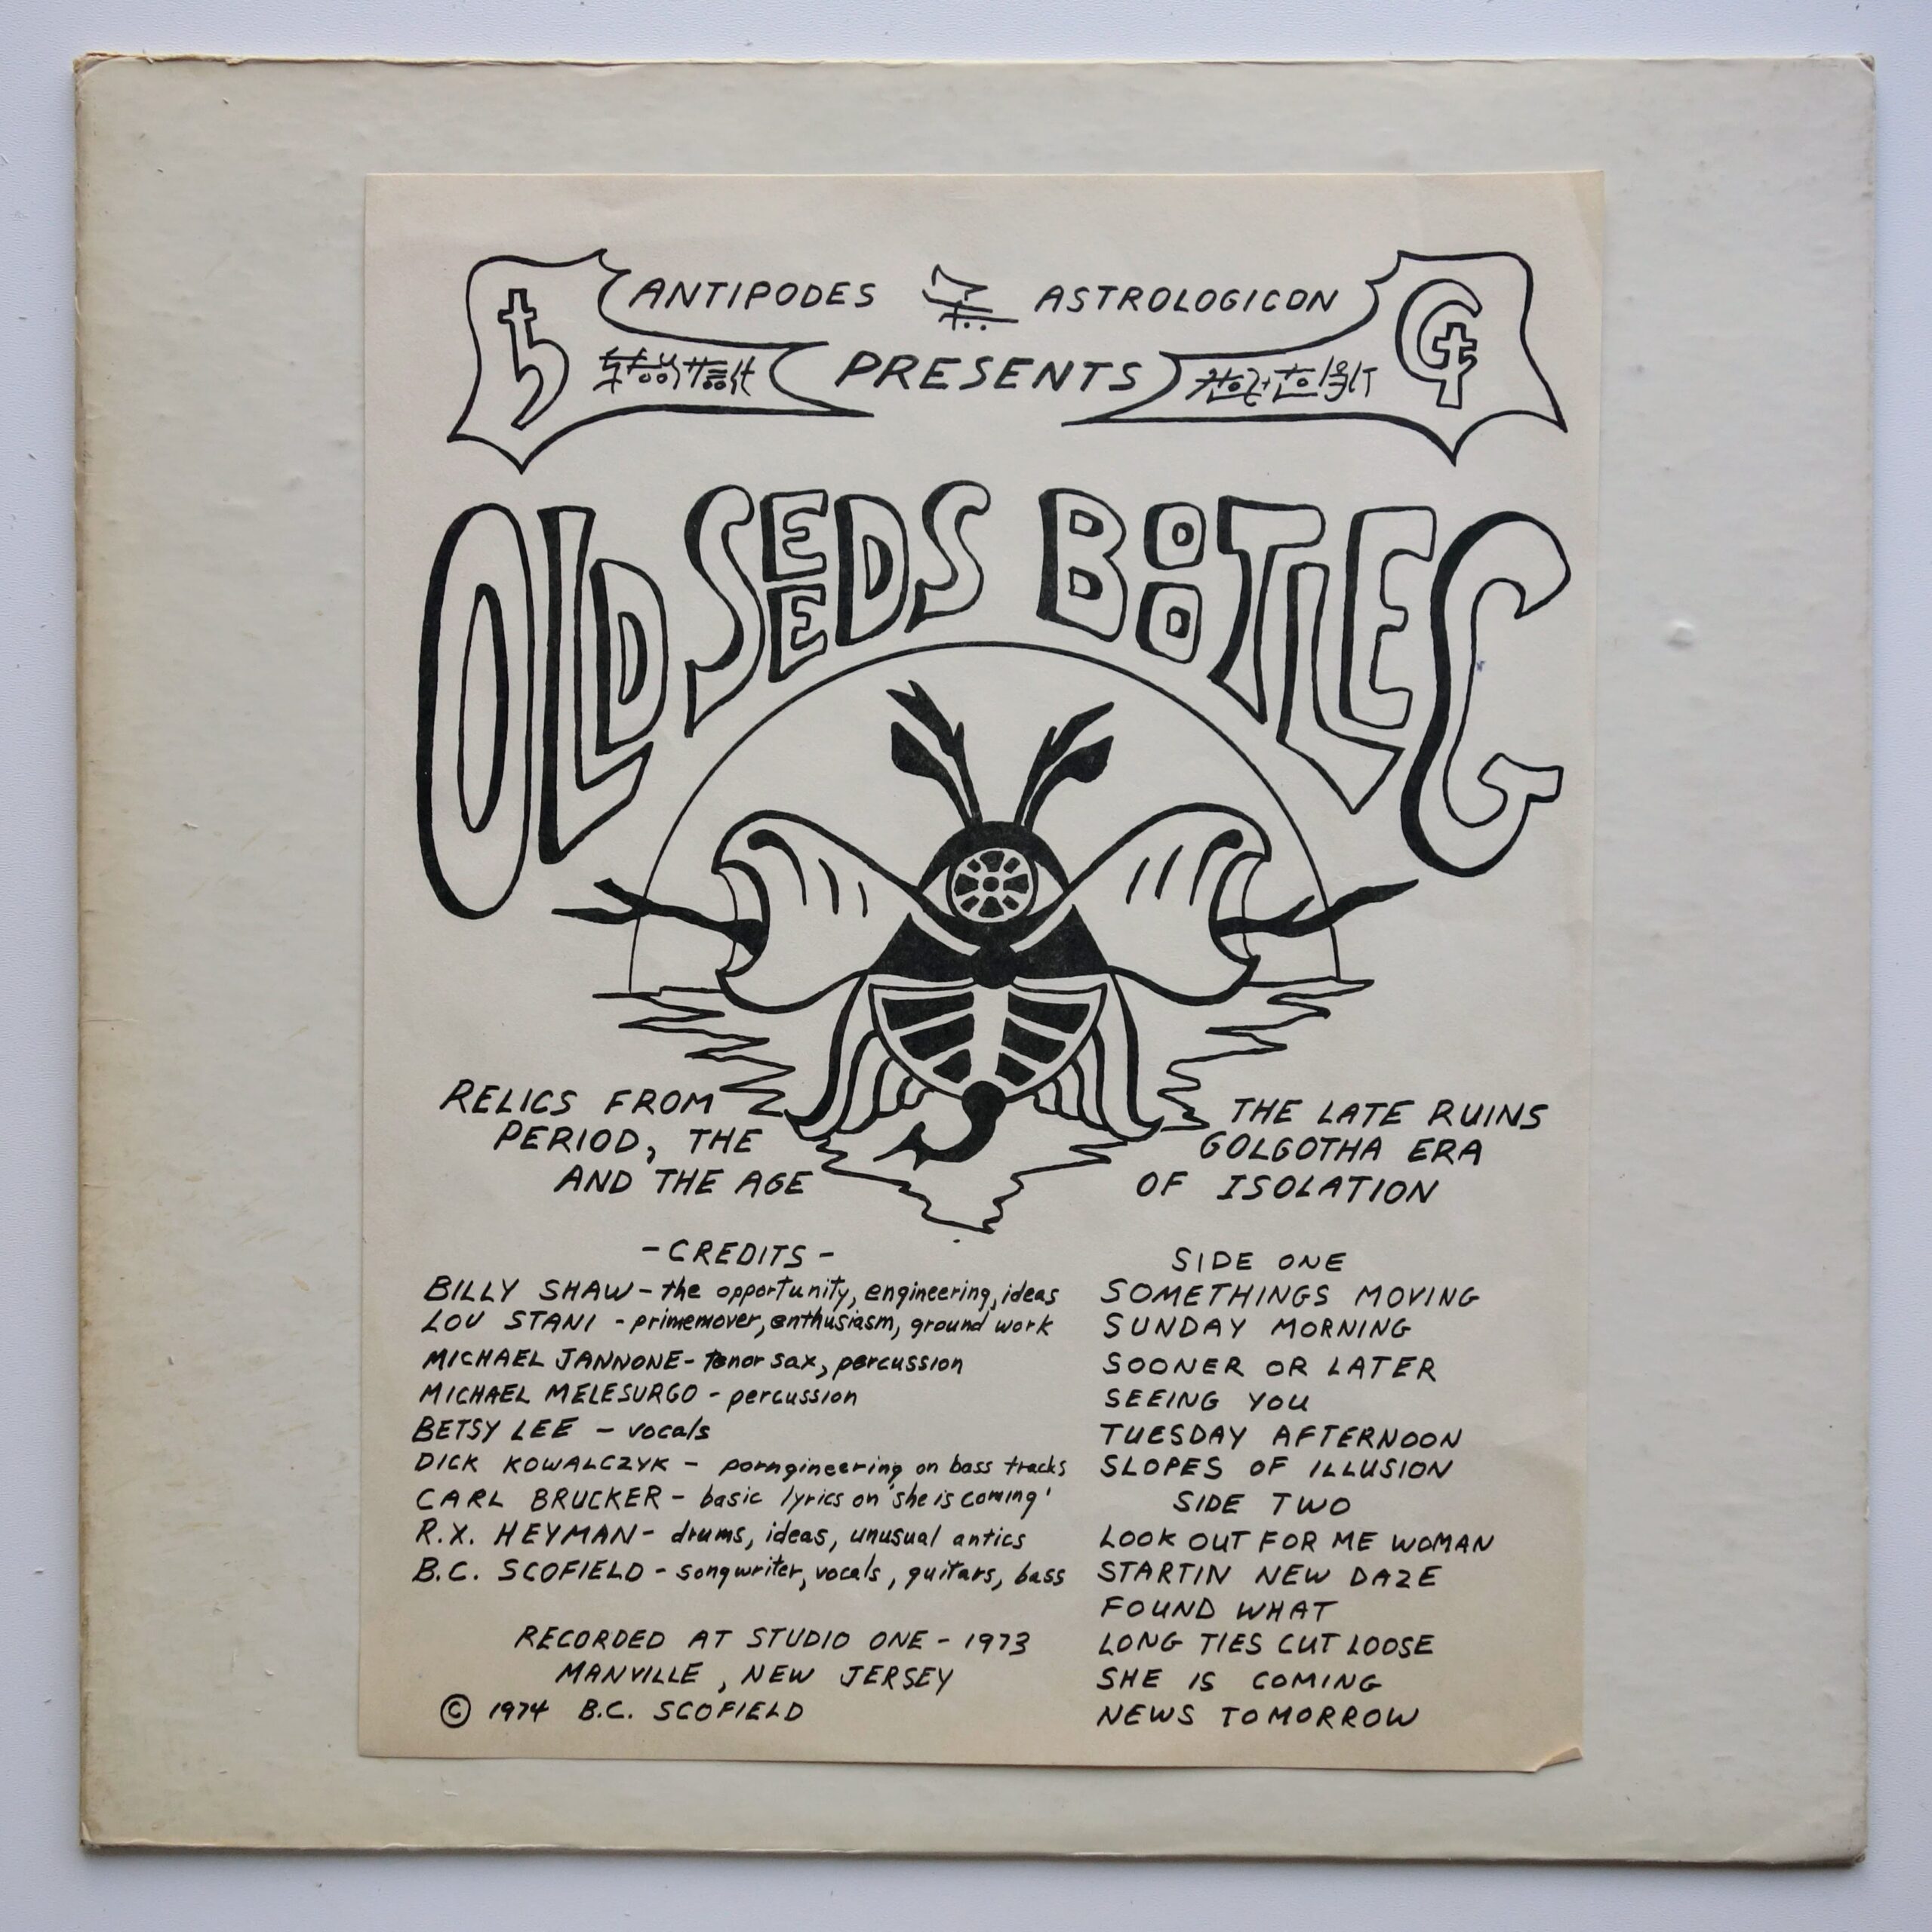 ANTIPODES ASTROLOGICON
PRESENTS
OLD SEEDS BOOTLEG
RELICS FROM THE LATE RUINS
PERIOD, THE GOLGOTHA ERA
AND THE AGE OF ISOLATION
-CREDITS-
BILLY SHAW - the opportunity, engineering, ideas
LOU STANI - primemover, enthusiasm, ground work
MICHAEL JANNONE - tenor sax, percussion
MICHAEL MELESURGO - percussion
BETSY LEE - vocals
DICK KOWALCZYK - porngineering on bass tracks
CARL BRUCKER - basic lyrics on 'she is coming'
R.X. HEYMAN - drums, ideas, unusual antics
B.C. SCOFIELD - songwriter, vocals, guitars, bass
RECORDED AT STUDIO ONE - 1973
MANVILLE, NEW JERSEY
© 1974 B.C. SCOFIELD
SIDE ONE
SOMETHINGS MOVING
SUNDAY MORNING
SOONER OR LATER
SEEING YOU
TUESDAY AFTERNOON
SLOPES OF ILLUSION
SIDE TWO
LOOK OUT FOR ME WOMAN
STARTIN NEW DAZE
FOUND WHAT
LONG TIES CUT LOOSE
SHE IS COMING
NEWS TOMORROW